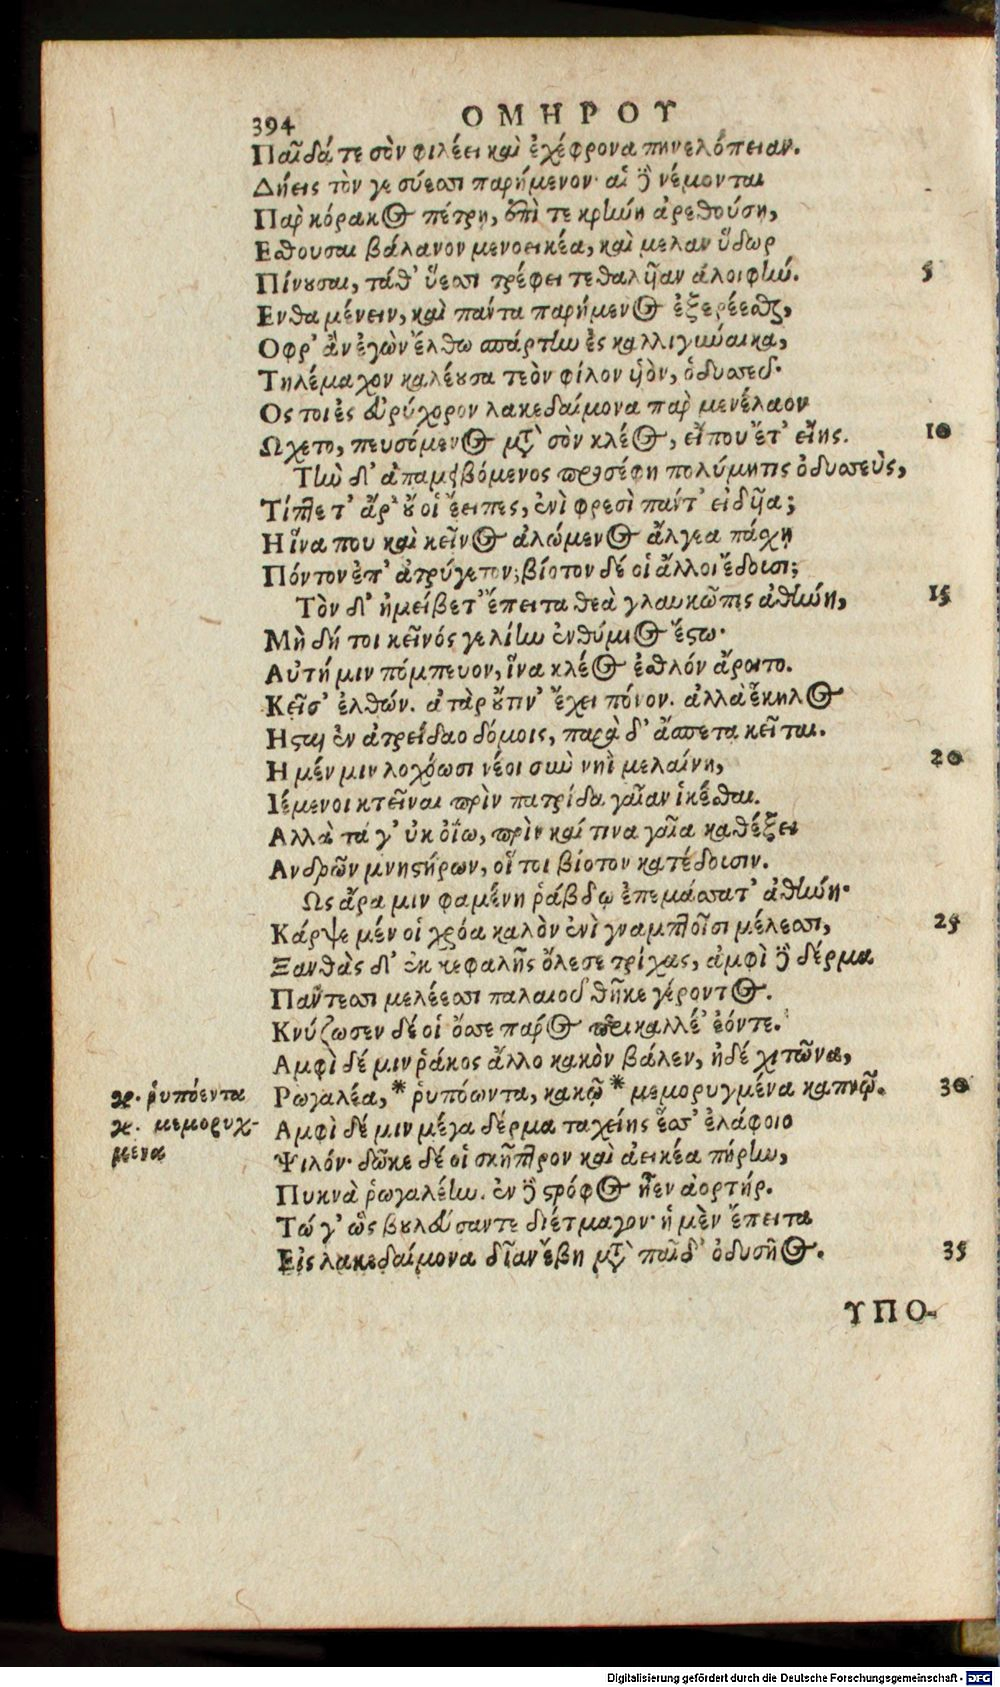 394 ΟΜΗΡΟΥ
Παῖδά τε σὸν φιλέει καὶ ἐχέφρονα πηνελόπειαν.
Δήεις τὸν γε σύεσσι παρήμενον· αἱ δὲ νέμονται
Παρ κόρακος πέτρῃ, ἐπὶ τε κρήνῃ ἀρεθούσῃ,
Εσθουσαι βάλανον μενοεικέα, καὶ μελαν ὕδωρ
Πίνουσαι, τάθ' ὕεσσι τρέφει τεθαλυῖαν ἀλοιφήν. 5
Ενθα μένειν, καὶ πάντα παρήμενος ἐξερέεσθαι,
Οφρ' ἂν ἐγὼν ἔλθω σπάρτην ἐς καλλιγύναικα,
Τηλέμαχον καλέουσα τεὸν φίλον υἱὸν, ὀδυσσεῦ·
Ος τοι ἐς εὐρύχορον λακεδαίμονα παρ μενέλαον
Ωχετο, πευσόμενος μετὰ σὸν κλέος, εἴ που ἔτ' εἴης. 10
Τὴν δ' ἀπαμειβόμενος προσέφη πολύμητις ὀδυσσεὺς,
Τίπτε τ' ἄρ' οὔ οἱ ἔειπες, ἐνὶ φρεσὶ παντ' εἰδυῖα;
Η ἵνα που καὶ κεῖνος ἀλώμενος ἄλγεα πάσχῃ
Πόντον ἐπ' ἀτρύγετον; βίοτον δέ οἱ ἄλλοι ἔδουσι;
Τὸν δ' ἠμείβετ' ἔπειτα θεὰ γλαυκῶπις ἀθήνη, 15
Μὴ δή τοι κεῖνός γε λίην ἐνθύμιος ἔστω·
Αὐτή μιν πόμπευον, ἵνα κλέος ἐσθλόν ἄροιτο.
Κεῖσ' ἐλθών. ἀτὰρ οὔτιν' ἔχει πόνον. ἀλλὰ ἕκηλος
Ησται ἐν ἀτρείδαο δόμοις, παρὰ δ' ἄσπετα κεῖται.
Η μέν μιν λοχόωσι νέοι σὺν νηῒ μελαίνῃ, 20
Ιέμενοι κτεῖναι πρὶν πατρίδα γαῖαν ἱκέσθαι.
Αλλὰ τά γ' οὐκ ὀΐω, πρὶν καί τινα γαῖα καθέξει
Ανδρῶν μνηστήρων, οἵ τοι βίοτον κατέδουσιν.
Ως ἄρα μιν φαμένη ῥάβδῳ ἐπεμάσσατ' ἀθήνη·
Κάρψε μέν οἱ χρόα καλὸν ἐνὶ γναμπτοῖσι μέλεσσι, 25
Ξανθὰς δ' ἐκ κεφαλῆς ὄλεσε τρίχας, ἀμφὶ δὲ δέρμα
Παντεσσι μελέεσσι παλαιοῦ θῆκε γέροντος.
Κνύζωσεν δέ οἱ ὄσσε πάρος περικαλλέ' ἐόντε.
Αμφὶ δέ μιν ῥάκος ἄλλο κακὸν βάλεν, ἠδέ χιτῶνα,
γρ. ῥυπόεντα Ρωγαλέα, * ῥυπόωντα, κακῷ * μεμορυγμένα καπνῷ. 30
γρ. μεμορυχ- Αμφὶ δέ μιν μέγα δέρμα ταχείης ἕσσ' ἐλάφοιο
μενα Ψιλόν· δῶκε δέ οἱ σκῆπτρον καὶ ἀεικέα πήρην,
Πυκνὰ ῥωγαλέην. ἐν δὲ στρόφος ἦεν ἀορτήρ.
Τώ γ' ὣς βουλεύσαντε διέτμαγον· ἡ μὲν ἔπειτα
Εἰς λακεδαίμονα δῖαν ἔβη μετὰ παῖδ' ὀδυσῆος. 35
ΥΠΟ-
Digitalisierung gefördert durch die Deutsche Forschungsgemeinschaft - DFG